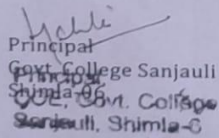 Principal
Govt. College Sanjauli
Shimla-06
Principal
Govt. College
Sanjauli, Shimla-6